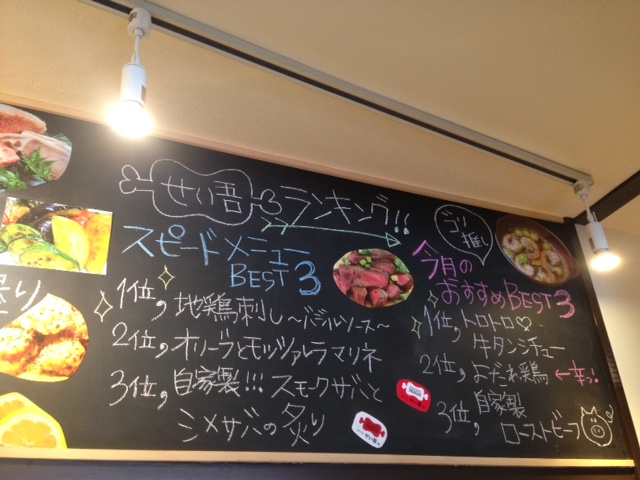 せい吾ランキング!!
スピードメニュー
BEST3
1位, 地鶏刺し〜バジルソース〜
2位, オリーブとモッツァレラマリネ
3位, 自家製!!! スモークサバと
シメサバの炙り
ゴリ
推し
今月の
おすすめBEST3
1位, トロトロ♡
牛タンシチュー
2位, よだれ鶏 ←辛っ!
3位, 自家製
ローストビーフ